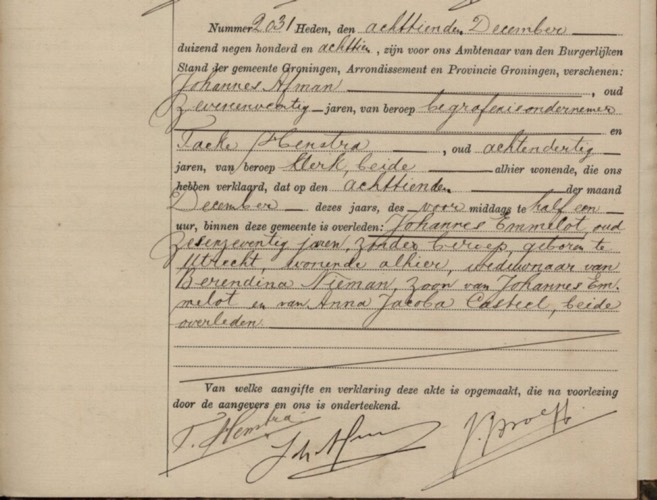 Nummer 2031 Heden, den achttienden December
duizend negen honderd en achttien, zijn voor ons Ambtenaar van den Burgerlijken
Stand der gemeente Groningen, Arrondissement en Provincie Groningen, verschenen:
Johannes Afman, oud
zevenentwintig jaren, van beroep begrafenisondernemer
en
Tacke Henstra, oud achtendertig
jaren, van beroep klerk, beide alhier wonende, die ons
hebben verklaard, dat op den achttienden der maand
December dezes jaars, des voormiddags te half een
uur, binnen deze gemeente is overleden: Johannes Emmelot, oud
zesenzeventig jaren, zonder beroep, geboren te
Utrecht, wonende alhier, weduwnaar van
Berendina Nieman, zoon van Johannes Em-
melot en van Anna Jacoba Casteel, beide
overleden
Van welke aangifte en verklaring deze akte is opgemaakt, die na voorlezing
door de aangevers en ons is onderteekend.
T. Henstra Joh Afman